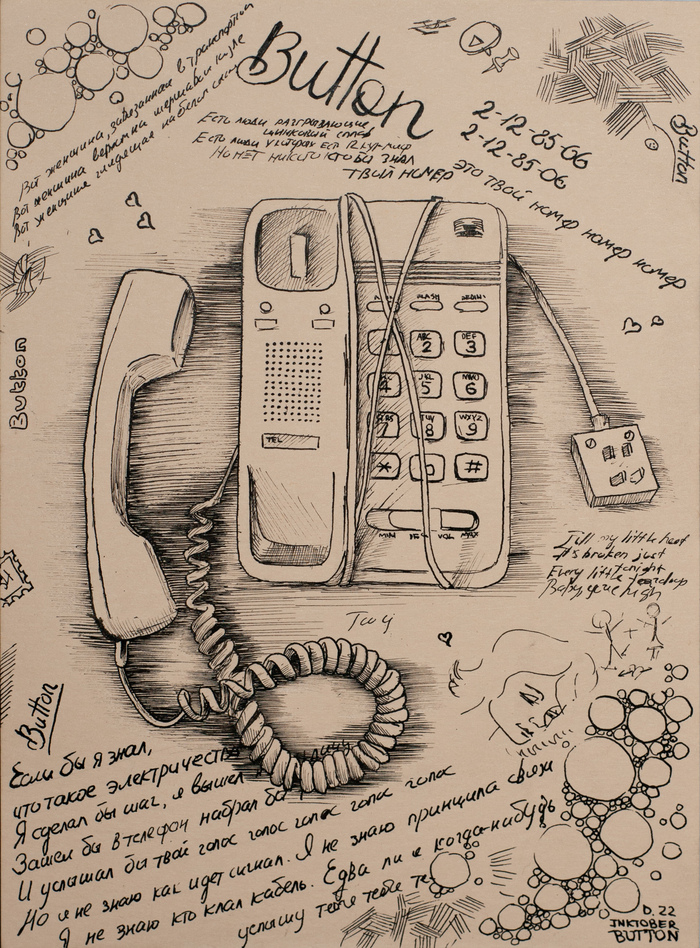 Button
Вот женщина, завязанная в транспортный
Вот женщина верхом на шершавом
Вот женщина глядящая на белой
Есть люди разгрызающие
цинковый сплав
Есть люди у которых есть
Но нет никого кто бы знал
твой номер это твой номер номер номер
2-12-85-06
2-12-85-06
Button
Button
FLASH
REDIAL
ABC
2
DEF
3
4
JKL
5
MNO
6
7
TUV
8
WXYZ
9
*
0
#
TEL
MIN
VOL
MAX
Tell my little heart
It's broken just
Every little
Baby you're high
Button
Если бы я знал,
что такое электричество
Я сделал бы шаг, я вышел
Зашел бы в телефон набрал бы
И услышал бы твой голос голос голос голос голос
Но я не знаю как идет сигнал. Я не знаю принципа связи
Я не знаю кто клал кабель. Едва ли я когда-нибудь
услышу тебя тебя те
D. 22
INKTOBER
BUTTON